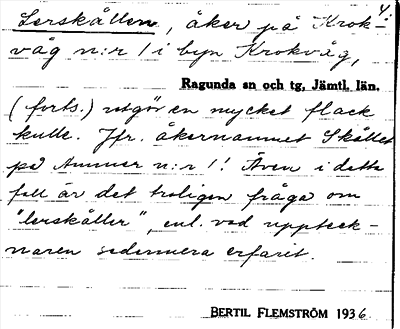 4.
Lerskållen, åker på Krok-
våg n:r 1 i byn Krokvåg,
Ragunda sn och tg, Jämtl. län.
(forts.) utgör en mycket flack
kulle. Jfr. åkernamnet Skållen
på Ammer n:r 1! Även i detta
fall är det troligen fråga om
"lerskåller", enl. vad uppteck-
naren sedermera erfarit.
BERTIL FLEMSTRÖM 1936.